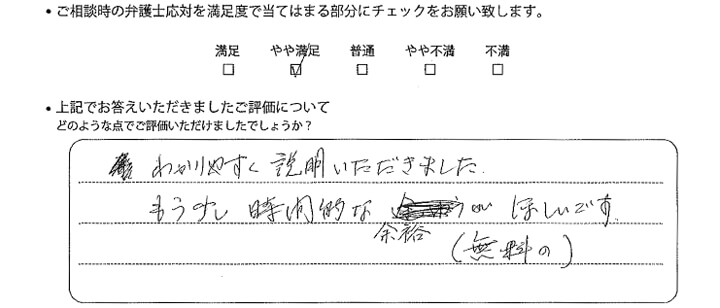 • ご相談時の弁護士応対を満足度で当てはまる部分にチェックをお願い致します。
満足 やや満足 普通 やや不満 不満
□ ☑ □ □ □
• 上記でお答えいただきましたご評価について
どのような点でご評価いただけましたでしょうか？
わかりやすく説明いただきました.
もう少し 時間的な 余裕が ほしいです.
(無料の)